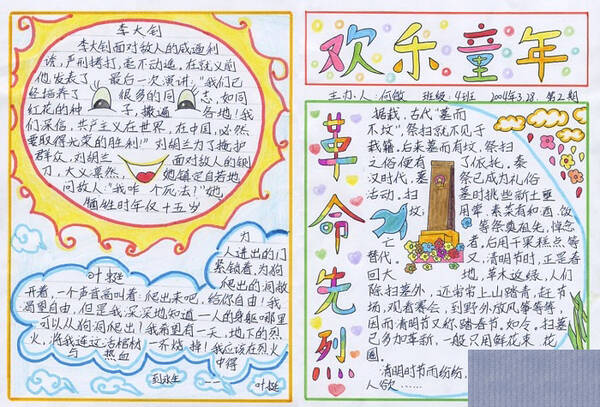 李大钊
李大钊面对敌人的威逼利
诱,严刑拷打,毫不动遥,在就义前
他发表了 最后一次演讲:"我们已
经培养了 很多的同 志,如同
红花的种 子,撒遍 各地!我
们深信,共产主义在世界,在中国,必然
要取得光荣的胜利!"刘胡兰为了掩护
群众,刘胡兰 面对敌人的钢
刀,大义凛然, 她镇定自若地
问敌人:"我咋个死法!"她
牺牲时年仅十五岁
叶挺
为
人进出的门
紧锁着,为狗
爬出的洞敞
开着,一个声音高叫着:爬出来吧,给你自由!我
渴望自由,但是我深深地知道一人的身躯哪里
可以从狗洞爬出!我希望有一天,地下的烈
火,将我连这活棺材 一齐烧掉!我应该在烈火
与 热血 中得
到永生 —— 叶挺
欢乐童年
主办人:何傲 班级:4班 2004年3.28 第2期
革命先烈
据载,古代"墓而
不坟",祭扫就不见于
载籍.后来墓而有坟,祭扫
之俗便有 了依托.秦
汉时代.墓 祭已成为礼俗
活动.扫 墓时挑些新土垩
坟, 用荤.素菜有和酒.饭
等祭奠祖先,悼念
亡 者.后用干果糕点等
替代. 又.清明节时,正是春
回大 地,草木返绿,人们
除扫墓外,还常常上山踏青,赶节
场,观看赛会,到野外放风筝等等,
因而清明节又称踏春节.如今,扫墓
已多加革新,一般只用鲜花束.花
圈.
清明时节雨纷纷,
人欲……